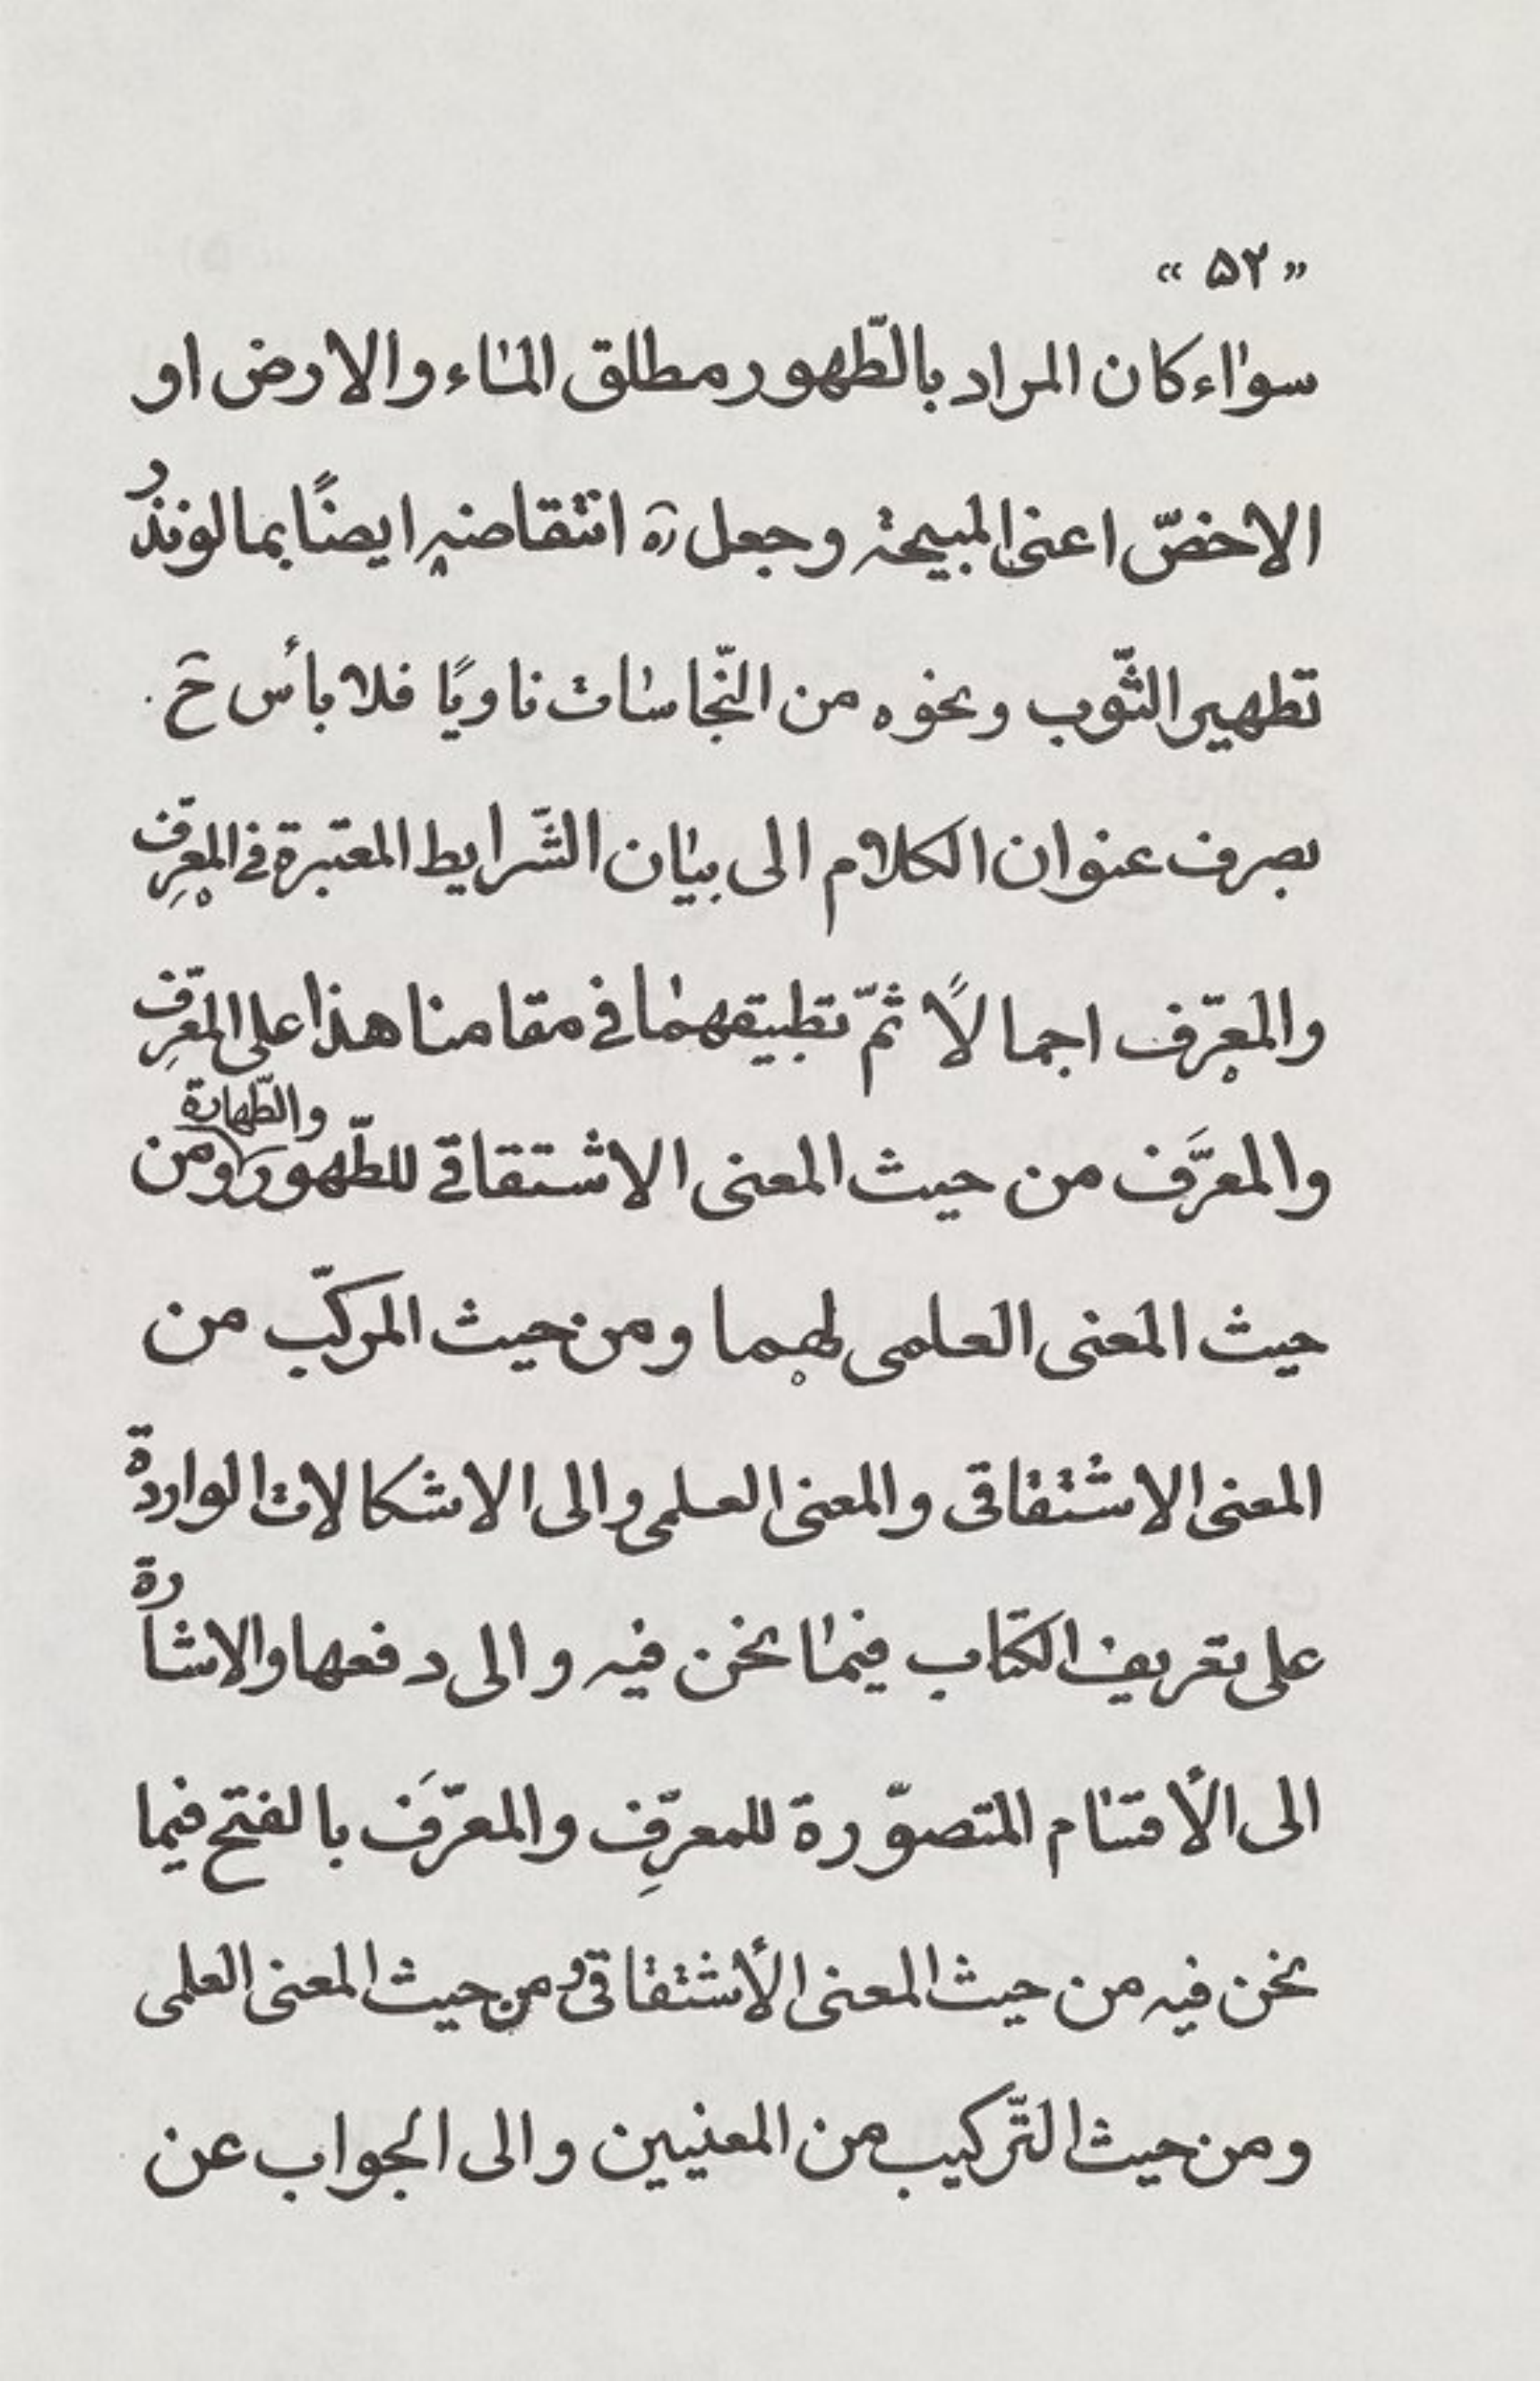 « ۵۲ »
سوٰاء كان المراد بالطّهور مطلق المٰاء والارض او
الاخصّ اعنى المبيحة وجعل ره انتقاضه ايضًا بما لو نذر
تطهير الثّوب ونحوه من النّجاسٰات ناويًا فلا بأس حَ
بصرف عنوان الكلام الى بيٰان الشّرايط المعتبرة فى المعرِّف
والمعرّف اجمالًا ثمّ تطبيقهمٰا فى مقامنا هذا على المعرِّف
والمعرَّف من حيث المعنى الاشتقاقى للطّهور والطّهارة ومن
حيث المعنى العلمى لهما ومن حيث المركّب من
المعنى الاشتقاقى والمعنى العلمى والى الاشكالات الواردة
على تعريف الكتاب فيمٰا نحن فيه والى دفعها والاشارة
الى الأقسٰام المتصوّرة للمعرِّف والمعرَّف بالفتح فيما
نحن فيه من حيث المعنى الأشتقاقى ومن حيث المعنى العلمى
ومن حيث التّركيب من المعنيين والى الجواب عن